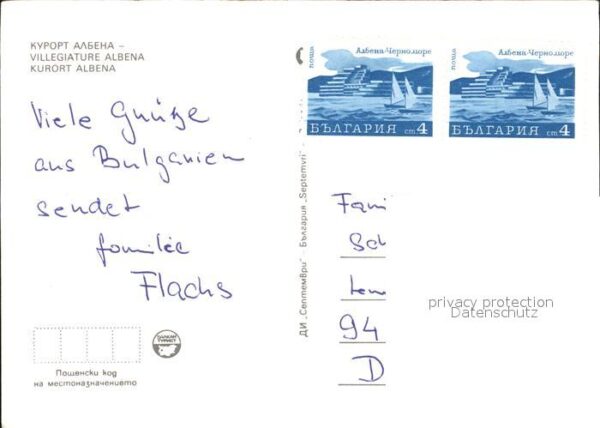 КУРОРТ АЛБЕНА –
VILLEGIATURE ALBENA
KURORT ALBENA
Viele Grüße
aus Bulgarien
sendet
familie
Flachs
Пощенски код
на местоназначението
БАЛКАН
ТУРИСТ
ДИ „Септември" · България „Septemvri"
поща
Албена-Черноморе
БЪЛГАРИЯ ст 4
поща
Албена-Черноморе
БЪЛГАРИЯ ст 4
Fami
Sch
94
D
privacy protection
Datenschutz